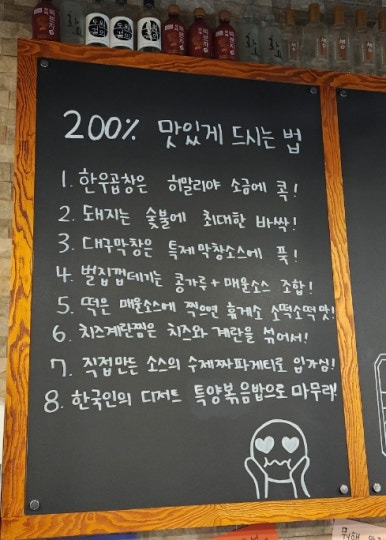 200% 맛있게 드시는 법
1. 한우곱창은 히말리야 소금에 콕!
2. 돼지는 숯불에 최대한 바싹!
3. 대구막창은 특제막창소스에 푹!
4. 벌집껍데기는 콩가루+매운소스 조합!
5. 떡은 매운소스에 찍으면 휴게소 소떡소떡 맛!
6. 치즈계란찜은 치즈와 계란을 섞어서!
7. 직접만든 소스의 수제짜파게티로 입가심!
8. 한국인의 디저트 특양볶음밥으로 마무리!